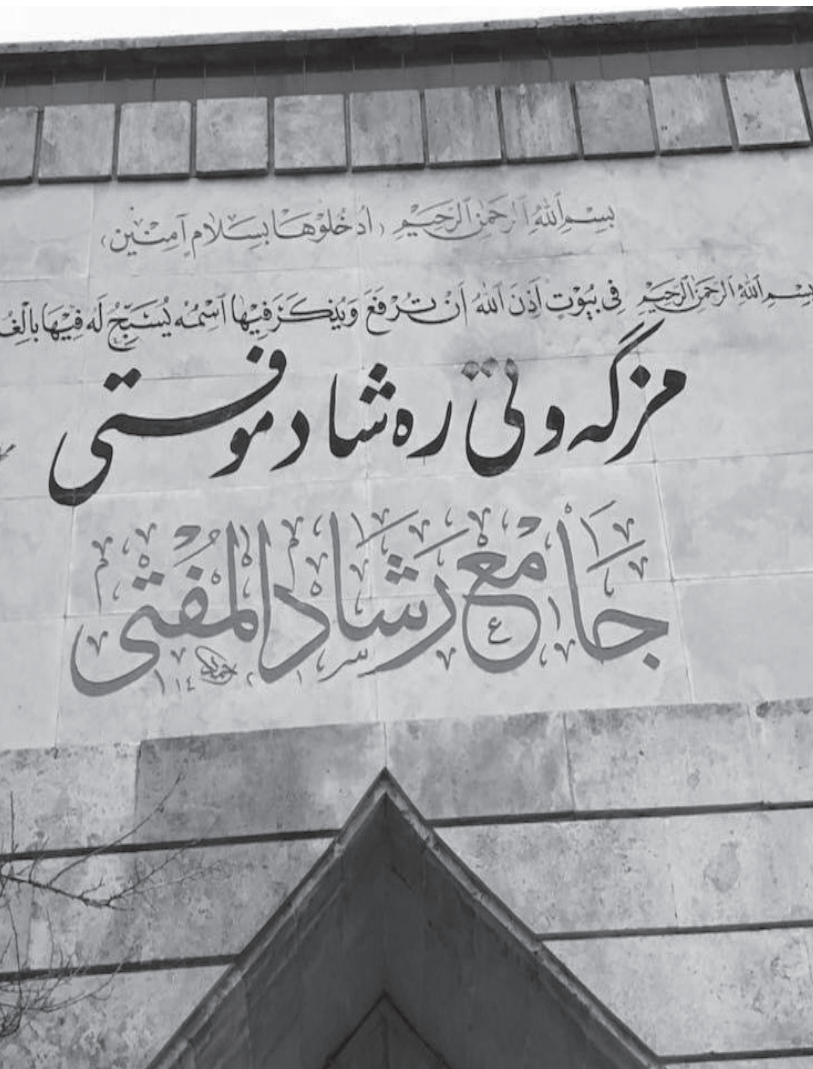 بِسْمِ اللّٰهِ الرَّحْمٰنِ الرَّحِيْمِ (ادْخُلُوْهَا بِسَلَامٍ آمِنِيْنَ)
بِسْمِ اللّٰهِ الرَّحْمٰنِ الرَّحِيْمِ فِی بُيُوْتٍ اَذِنَ اللّٰهُ اَنْ تُرْفَعَ وَيُذْكَرَ فِيْهَا اسْمُهُ يُسَبِّحُ لَهُ فِيْهَا
مزگەوتی رەشاد موفتی
جامع رشاد المفتی